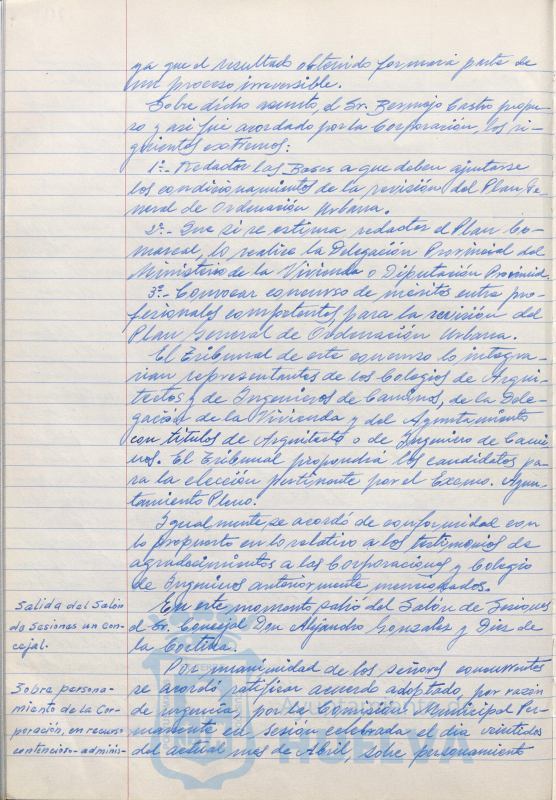 ya que el resultado obtenido formará parte de
un proceso irreversible.
Sobre dicho asunto, el Sr. Bermejo Castro propu-
so y así fue acordado por la Corporación, los si-
guientes extremos:
1º.- Redactar las Bases a que deben ajustarse
los condicionamientos de la revisión del Plan Ge-
neral de Ordenación Urbana.
2º.- Que si se estima redactar el Plan Co-
marcal, lo realice la Delegación Provincial del
Ministerio de la Vivienda o Diputación Provincial.
3º.- Convocar concurso de méritos entre pro-
fesionales competentes, para la revisión del
Plan General de Ordenación Urbana.
El Tribunal de este concurso lo integra-
rían representantes de los Colegios de Arqui-
tectos y de Ingenieros de Caminos, de la Dele-
gación de la Vivienda y del Ayuntamiento
con títulos de Arquitecto o de Ingeniero de Cami-
nos. El Tribunal propondrá los candidatos pa-
ra la elección pertinente por el Excmo. Ayun-
tamiento Pleno.
Igualmente se acordó de conformidad con
lo propuesto en lo relativo a los testimonios de
agradecimientos a las Corporaciones y Colegio
de Ingenieros anteriormente mencionados.
Salida del Salón
de Sesiones un con-
cejal.
En este momento salió del Salón de Sesiones
el Sr. Concejal Don Alejandro González y Diez de
la Cortina.
Sobre persona-
miento de la Cor-
poración, en recurso
contencioso-adminis-
Por unanimidad de los señores concurrentes
se acordó, ratificar acuerdo adoptado, por razón
de urgencia, por la Comisión Municipal Per-
manente en sesión celebrada el día veintidos
del actual mes de Abril, sobre personamiento
Ayuntamiento de
HUELVA